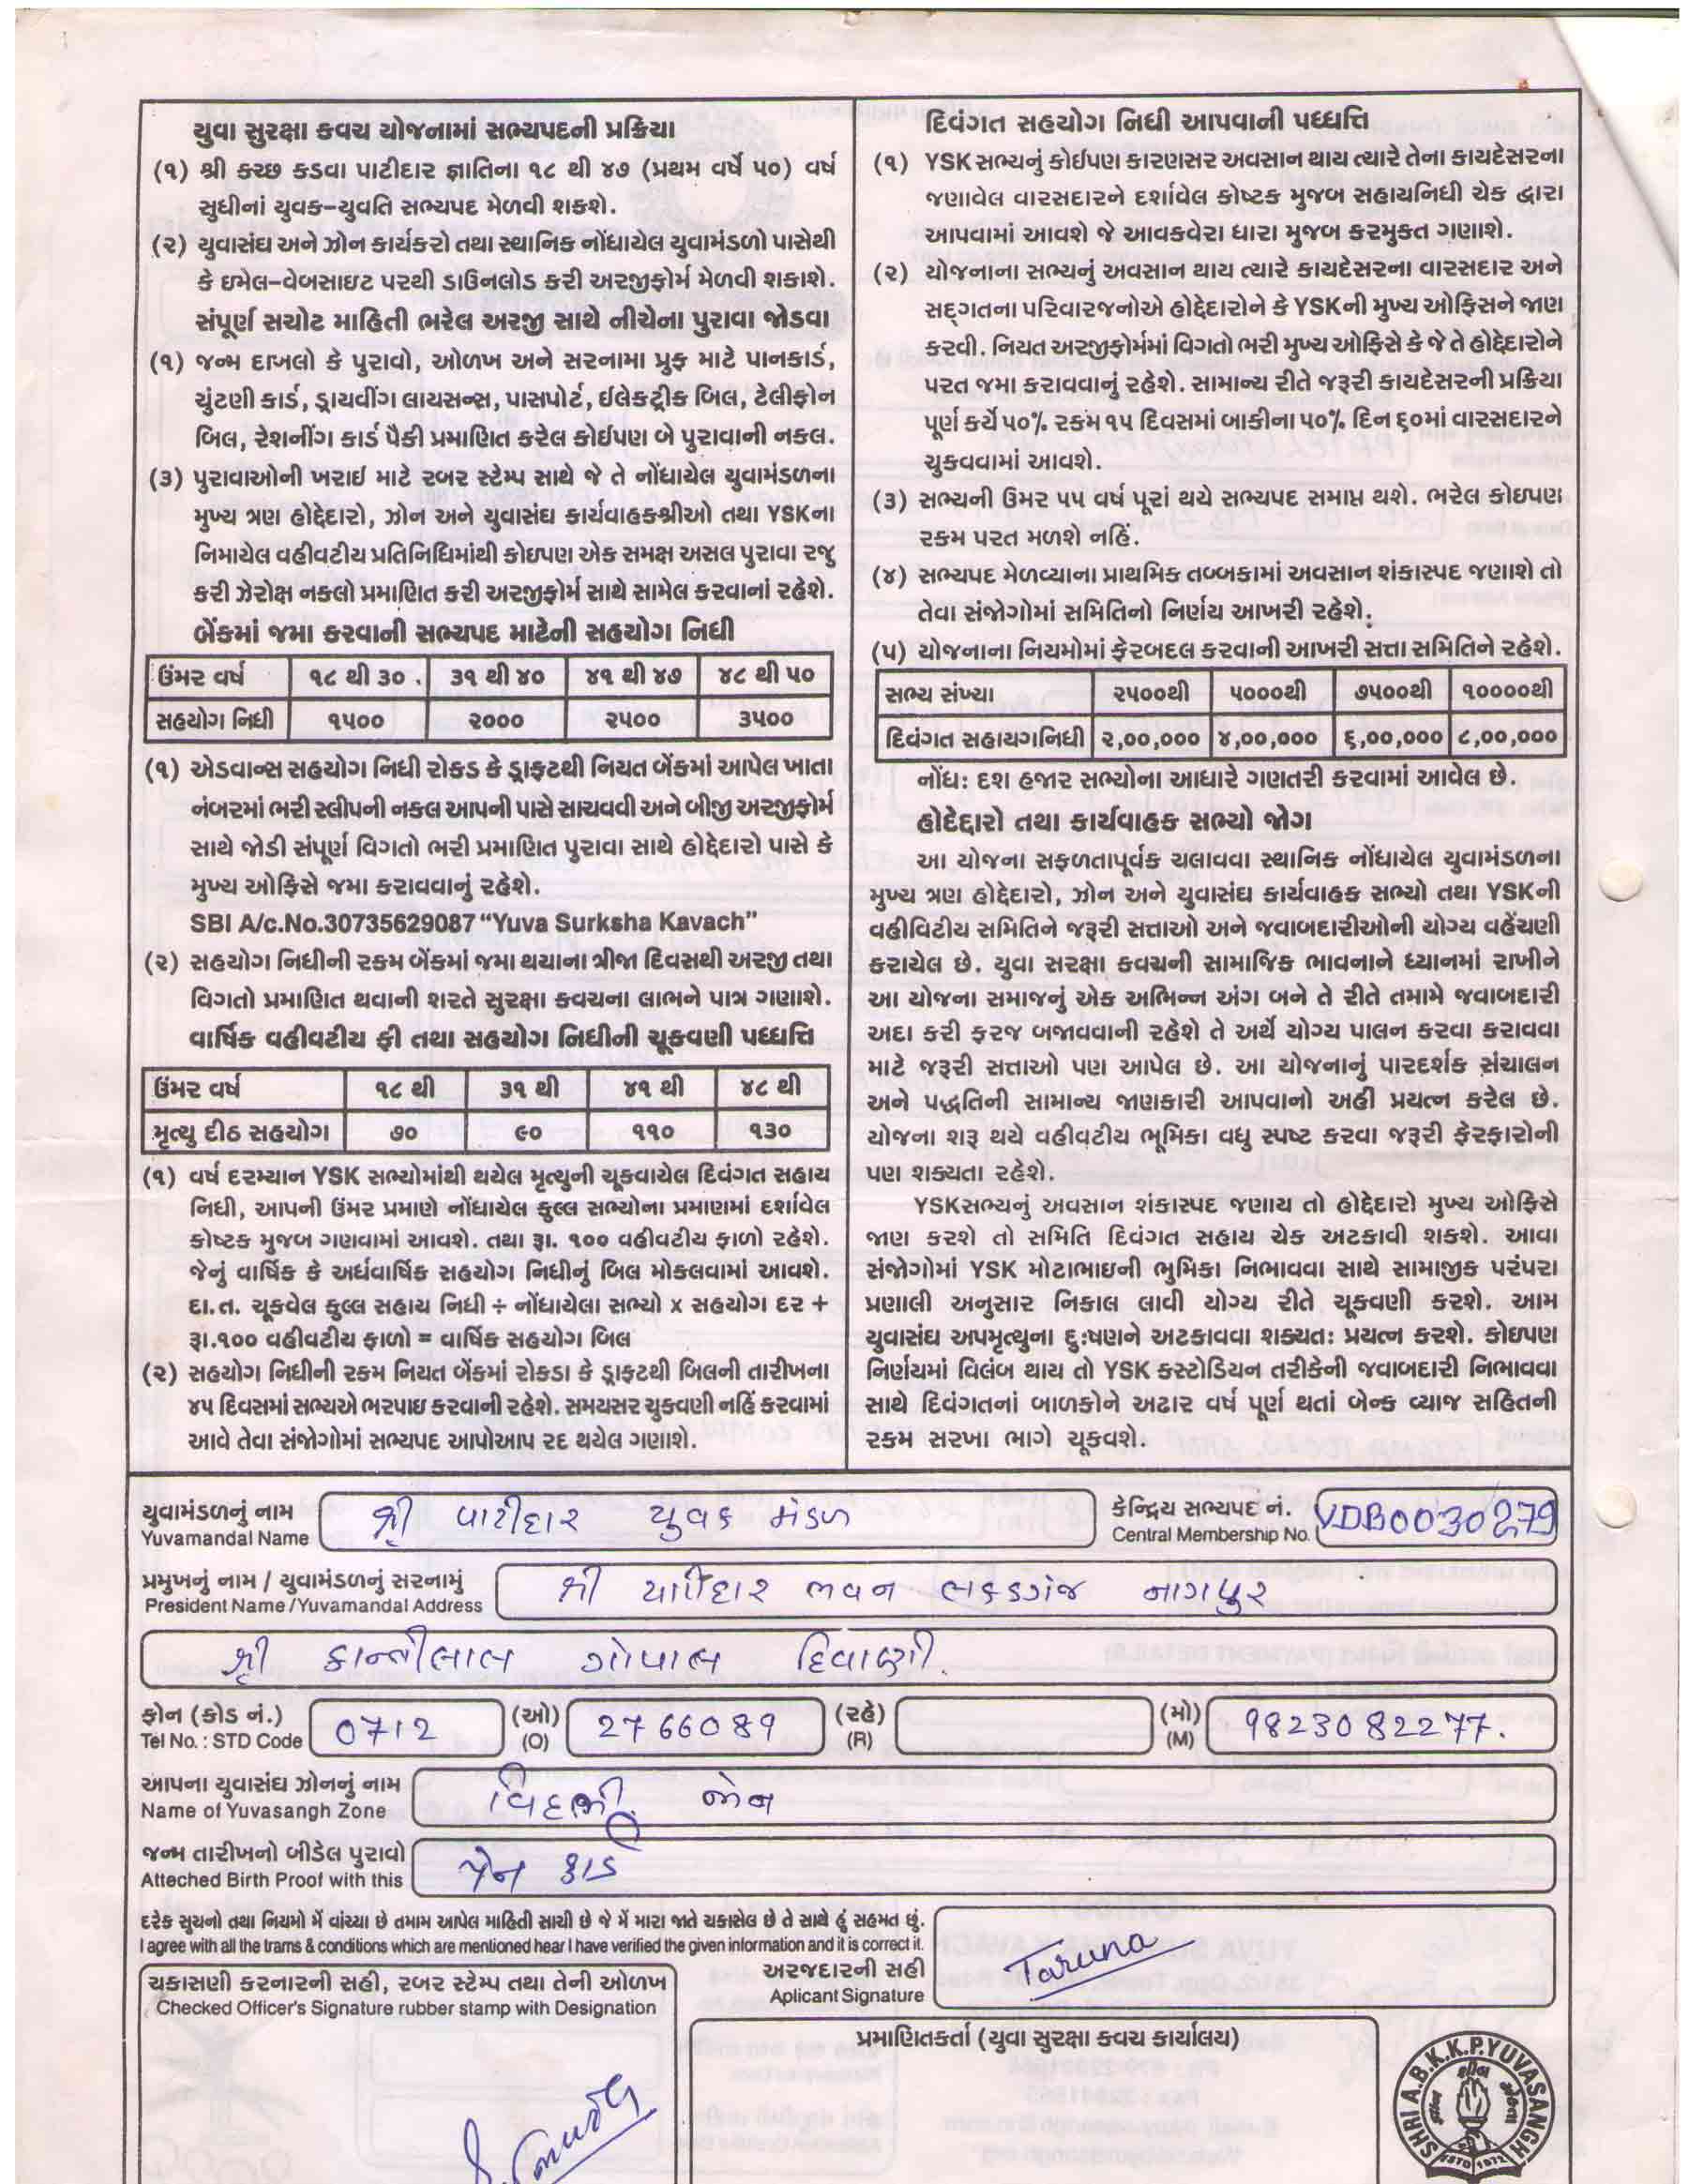 યુવા સુરક્ષા કવચ યોજનામાં સભ્યપદની પ્રક્રિયા
(૧) શ્રી કચ્છ કડવા પાટીદાર જ્ઞાતિના ૧૮ થી ૪૭ (પ્રથમ વર્ષે ૫૦) વર્ષ
સુધીનાં યુવક-યુવતિ સભ્યપદ મેળવી શકશે.
(૨) યુવાસંઘ અને ઝોન કાર્યકરો તથા સ્થાનિક નોંધાયેલ યુવામંડળો પાસેથી
કે ઇમેલ-વેબસાઇટ પરથી ડાઉનલોડ કરી અરજીફોર્મ મેળવી શકાશે.
સંપૂર્ણ સચોટ માહિતી ભરેલ અરજી સાથે નીચેના પુરાવા જોડવા
(૧) જન્મ દાખલો કે પુરાવો, ઓળખ અને સરનામા પ્રુફ માટે પાનકાર્ડ,
ચુંટણી કાર્ડ, ડ્રાયવીંગ લાયસન્સ, પાસપોર્ટ, ઈલેક્ટ્રીક બિલ, ટેલીફોન
બિલ, રેશનીંગ કાર્ડ પૈકી પ્રમાણિત કરેલ કોઈપણ બે પુરાવાની નકલ.
(૩) પુરાવાઓની ખરાઇ માટે રબર સ્ટેમ્પ સાથે જે તે નોંધાયેલ યુવામંડળના
મુખ્ય ત્રણ હોદ્દેદારો, ઝોન અને યુવાસંઘ કાર્યવાહકશ્રીઓ તથા YSKના
નિમાયેલ વહીવટીય પ્રતિનિધિમાંથી કોઇપણ એક સમક્ષ અસલ પુરાવા રજુ
કરી ઝેરોક્ષ નકલો પ્રમાણિત કરી અરજીફોર્મ સાથે સામેલ કરવાનાં રહેશે.
બેંકમાં જમા કરવાની સભ્યપદ માટેની સહયોગ નિધી
ઉંમર વર્ષ ૧૮ થી ૩૦ . ૩૧ થી ૪૦ ૪૧ થી ૪૭ ૪૮ થી ૫૦
સહયોગ નિધી ૧૫૦૦ ૨૦૦૦ ૨૫૦૦ ૩૫૦૦
(૧) એડવાન્સ સહયોગ નિધી રોકડ કે ડ્રાફ્ટથી નિયત બેંકમાં આપેલ ખાતા
નંબરમાં ભરી સ્લીપની નકલ આપની પાસે સાચવવી અને બીજી અરજીફોર્મ
સાથે જોડી સંપૂર્ણ વિગતો ભરી પ્રમાણિત પુરાવા સાથે હોદ્દેદારો પાસે કે
મુખ્ય ઓફિસે જમા કરાવવાનું રહેશે.
SBI A/c.No.30735629087 “Yuva Surksha Kavach”
(૨) સહયોગ નિધીની રકમ બેંકમાં જમા થયાના ત્રીજા દિવસથી અરજી તથા
વિગતો પ્રમાણિત થવાની શરતે સુરક્ષા કવચના લાભને પાત્ર ગણાશે.
વાર્ષિક વહીવટીય ફી તથા સહયોગ નિધીની ચૂકવણી પધ્ધતિ
ઉંમર વર્ષ ૧૮ થી ૩૧ થી ૪૧ થી ૪૮ થી
મૃત્યુ દીઠ સહયોગ ૭૦ ૯૦ ૧૧૦ ૧૩૦
(૧) વર્ષ દરમ્યાન YSK સભ્યોમાંથી થયેલ મૃત્યુની ચૂકવાયેલ દિવંગત સહાય
નિધી, આપની ઉંમર પ્રમાણે નોંધાયેલ કુલ્લ સભ્યોના પ્રમાણમાં દર્શાવેલ
કોષ્ટક મુજબ ગણવામાં આવશે. તથા રૂા. ૧૦૦ વહીવટીય ફાળો રહેશે.
જેનું વાર્ષિક કે અર્ધવાર્ષિક સહયોગ નિધીનું બિલ મોકલવામાં આવશે.
દા.ત. ચૂકવેલ કુલ્લ સહાય નિધી ÷ નોંધાયેલા સભ્યો x સહયોગ દર +
રૂા.૧૦૦ વહીવટીય ફાળો = વાર્ષિક સહયોગ બિલ
(૨) સહયોગ નિધીની રકમ નિયત બેંકમાં રોકડા કે ડ્રાફ્ટથી બિલની તારીખના
૪૫ દિવસમાં સભ્યએ ભરપાઇ કરવાની રહેશે. સમયસર ચુકવણી નહિં કરવામાં
આવે તેવા સંજોગોમાં સભ્યપદ આપોઆપ રદ થયેલ ગણાશે.
દિવંગત સહયોગ નિધી આપવાની પધ્ધતિ
(૧) YSK સભ્યનું કોઈપણ કારણસર અવસાન થાય ત્યારે તેના કાયદેસરના
જણાવેલ વારસદારને દર્શાવેલ કોષ્ટક મુજબ સહાયનિધી ચેક દ્વારા
આપવામાં આવશે જે આવકવેરા ધારા મુજબ કરમુકત ગણાશે.
(૨) યોજનાના સભ્યનું અવસાન થાય ત્યારે કાયદેસરના વારસદાર અને
સદ્ગતના પરિવારજનોએ હોદ્દેદારોને કે YSKની મુખ્ય ઓફિસને જાણ
કરવી. નિયત અરજીફોર્મમાં વિગતો ભરી મુખ્ય ઓફિસે કે જે તે હોદ્દેદારોને
પરત જમા કરાવવાનું રહેશે. સામાન્ય રીતે જરૂરી કાયદેસરની પ્રક્રિયા
પૂર્ણ કર્યે ૫૦% રકમ ૧૫ દિવસમાં બાકીના ૫૦% દિન ૬૦માં વારસદારને
ચુકવવામાં આવશે.
(૩) સભ્યની ઉંમર ૫૫ વર્ષ પૂરાં થયે સભ્યપદ સમાપ્ત થશે. ભરેલ કોઇપણ
રકમ પરત મળશે નહિં.
(૪) સભ્યપદ મેળવ્યાના પ્રાથમિક તબ્બકામાં અવસાન શંકાસ્પદ જણાશે તો
તેવા સંજોગોમાં સમિતિનો નિર્ણય આખરી રહેશે.
(૫) યોજનાના નિયમોમાં ફેરબદલ કરવાની આખરી સત્તા સમિતિને રહેશે.
સભ્ય સંખ્યા ૨૫૦૦થી ૫૦૦૦થી ૭૫૦૦થી ૧૦૦૦૦થી
દિવંગત સહાયગનિધી ૨,૦૦,૦૦૦ ૪,૦૦,૦૦૦ ૬,૦૦,૦૦૦ ૮,૦૦,૦૦૦
નોંધ: દશ હજાર સભ્યોના આધારે ગણતરી કરવામાં આવેલ છે.
હોદેદ્દારો તથા કાર્યવાહક સભ્યો જોગ
આ યોજના સફળતાપૂર્વક ચલાવવા સ્થાનિક નોંધાયેલ યુવામંડળના
મુખ્ય ત્રણ હોદ્દેદારો, ઝોન અને યુવાસંઘ કાર્યવાહક સભ્યો તથા YSKની
વહીવિટીય સમિતિને જરૂરી સત્તાઓ અને જવાબદારીઓની યોગ્ય વહેંચણી
કરાયેલ છે. યુવા સરક્ષા કવચની સામાજિક ભાવનાને ધ્યાનમાં રાખીને
આ યોજના સમાજનું એક અભિન્ન અંગ બને તે રીતે તમામે જવાબદારી
અદા કરી ફરજ બજાવવાની રહેશે તે અર્થે યોગ્ય પાલન કરવા કરાવવા
માટે જરૂરી સત્તાઓ પણ આપેલ છે. આ યોજનાનું પારદર્શક સંચાલન
અને પદ્ધતિની સામાન્ય જાણકારી આપવાનો અહી પ્રયત્ન કરેલ છે.
યોજના શરૂ થયે વહીવટીય ભૂમિકા વધુ સ્પષ્ટ કરવા જરૂરી ફેરફારોની
પણ શક્યતા રહેશે.
YSKસભ્યનું અવસાન શંકાસ્પદ જણાય તો હોદ્દેદારો મુખ્ય ઓફિસે
જાણ કરશે તો સમિતિ દિવંગત સહાય ચેક અટકાવી શકશે. આવા
સંજોગોમાં YSK મોટાભાઇની ભુમિકા નિભાવવા સાથે સામાજીક પરંપરા
પ્રણાલી અનુસાર નિકાલ લાવી યોગ્ય રીતે ચૂકવણી કરશે. આમ
યુવાસંઘ અપમૃત્યુના દુઃષણને અટકાવવા શક્યતઃ પ્રયત્ન કરશે. કોઇપણ
નિર્ણયમાં વિલંબ થાય તો YSK કસ્ટોડિયન તરીકેની જવાબદારી નિભાવવા
સાથે દિવંગતનાં બાળકોને અઢાર વર્ષ પૂર્ણ થતાં બેન્ક વ્યાજ સહિતની
રકમ સરખા ભાગે ચૂકવશે.
યુવામંડળનું નામ શ્રી પાટીદાર યુવક મંડળ કેન્દ્રિય સભ્યપદ નં. VDB0030279
Yuvamandal Name Central Membership No.
પ્રમુખનું નામ / યુવામંડળનું સરનામું શ્રી પાટીદાર ભવન લકડગંજ નાગપુર
President Name /Yuvamandal Address
શ્રી કાન્તીલાલ ગોપાલ દિવાણી.
ફોન (કોડ નં.) 0712 (ઓ) 2766089 (રહે) (મો) 9823082277.
Tel No. : STD Code (O) (R) (M)
આપના યુવાસંઘ ઝોનનું નામ વિદર્ભ ઝોન
Name of Yuvasangh Zone
જન્મ તારીખનો બીડેલ પુરાવો પેન કાર્ડ
Atteched Birth Proof with this
દરેક સુચનો તથા નિયમો મેં વાંચ્યા છે તમામ આપેલ માહિતી સાચી છે જે મેં મારા જાતે ચકાસેલ છે તે સાથે હું સહમત છું.
I agree with all the trams & conditions which are mentioned hear I have verified the given information and it is correct it.
અરજદારની સહી Taruna
Aplicant Signature
ચકાસણી કરનારની સહી, રબર સ્ટેમ્પ તથા તેની ઓળખ
Checked Officer's Signature rubber stamp with Designation
પ્રમાણિતકર્તા (યુવા સુરક્ષા કવચ કાર્યાલય)
SHRI A.B.K.K.P.YUVASANGH
ESTD 1972